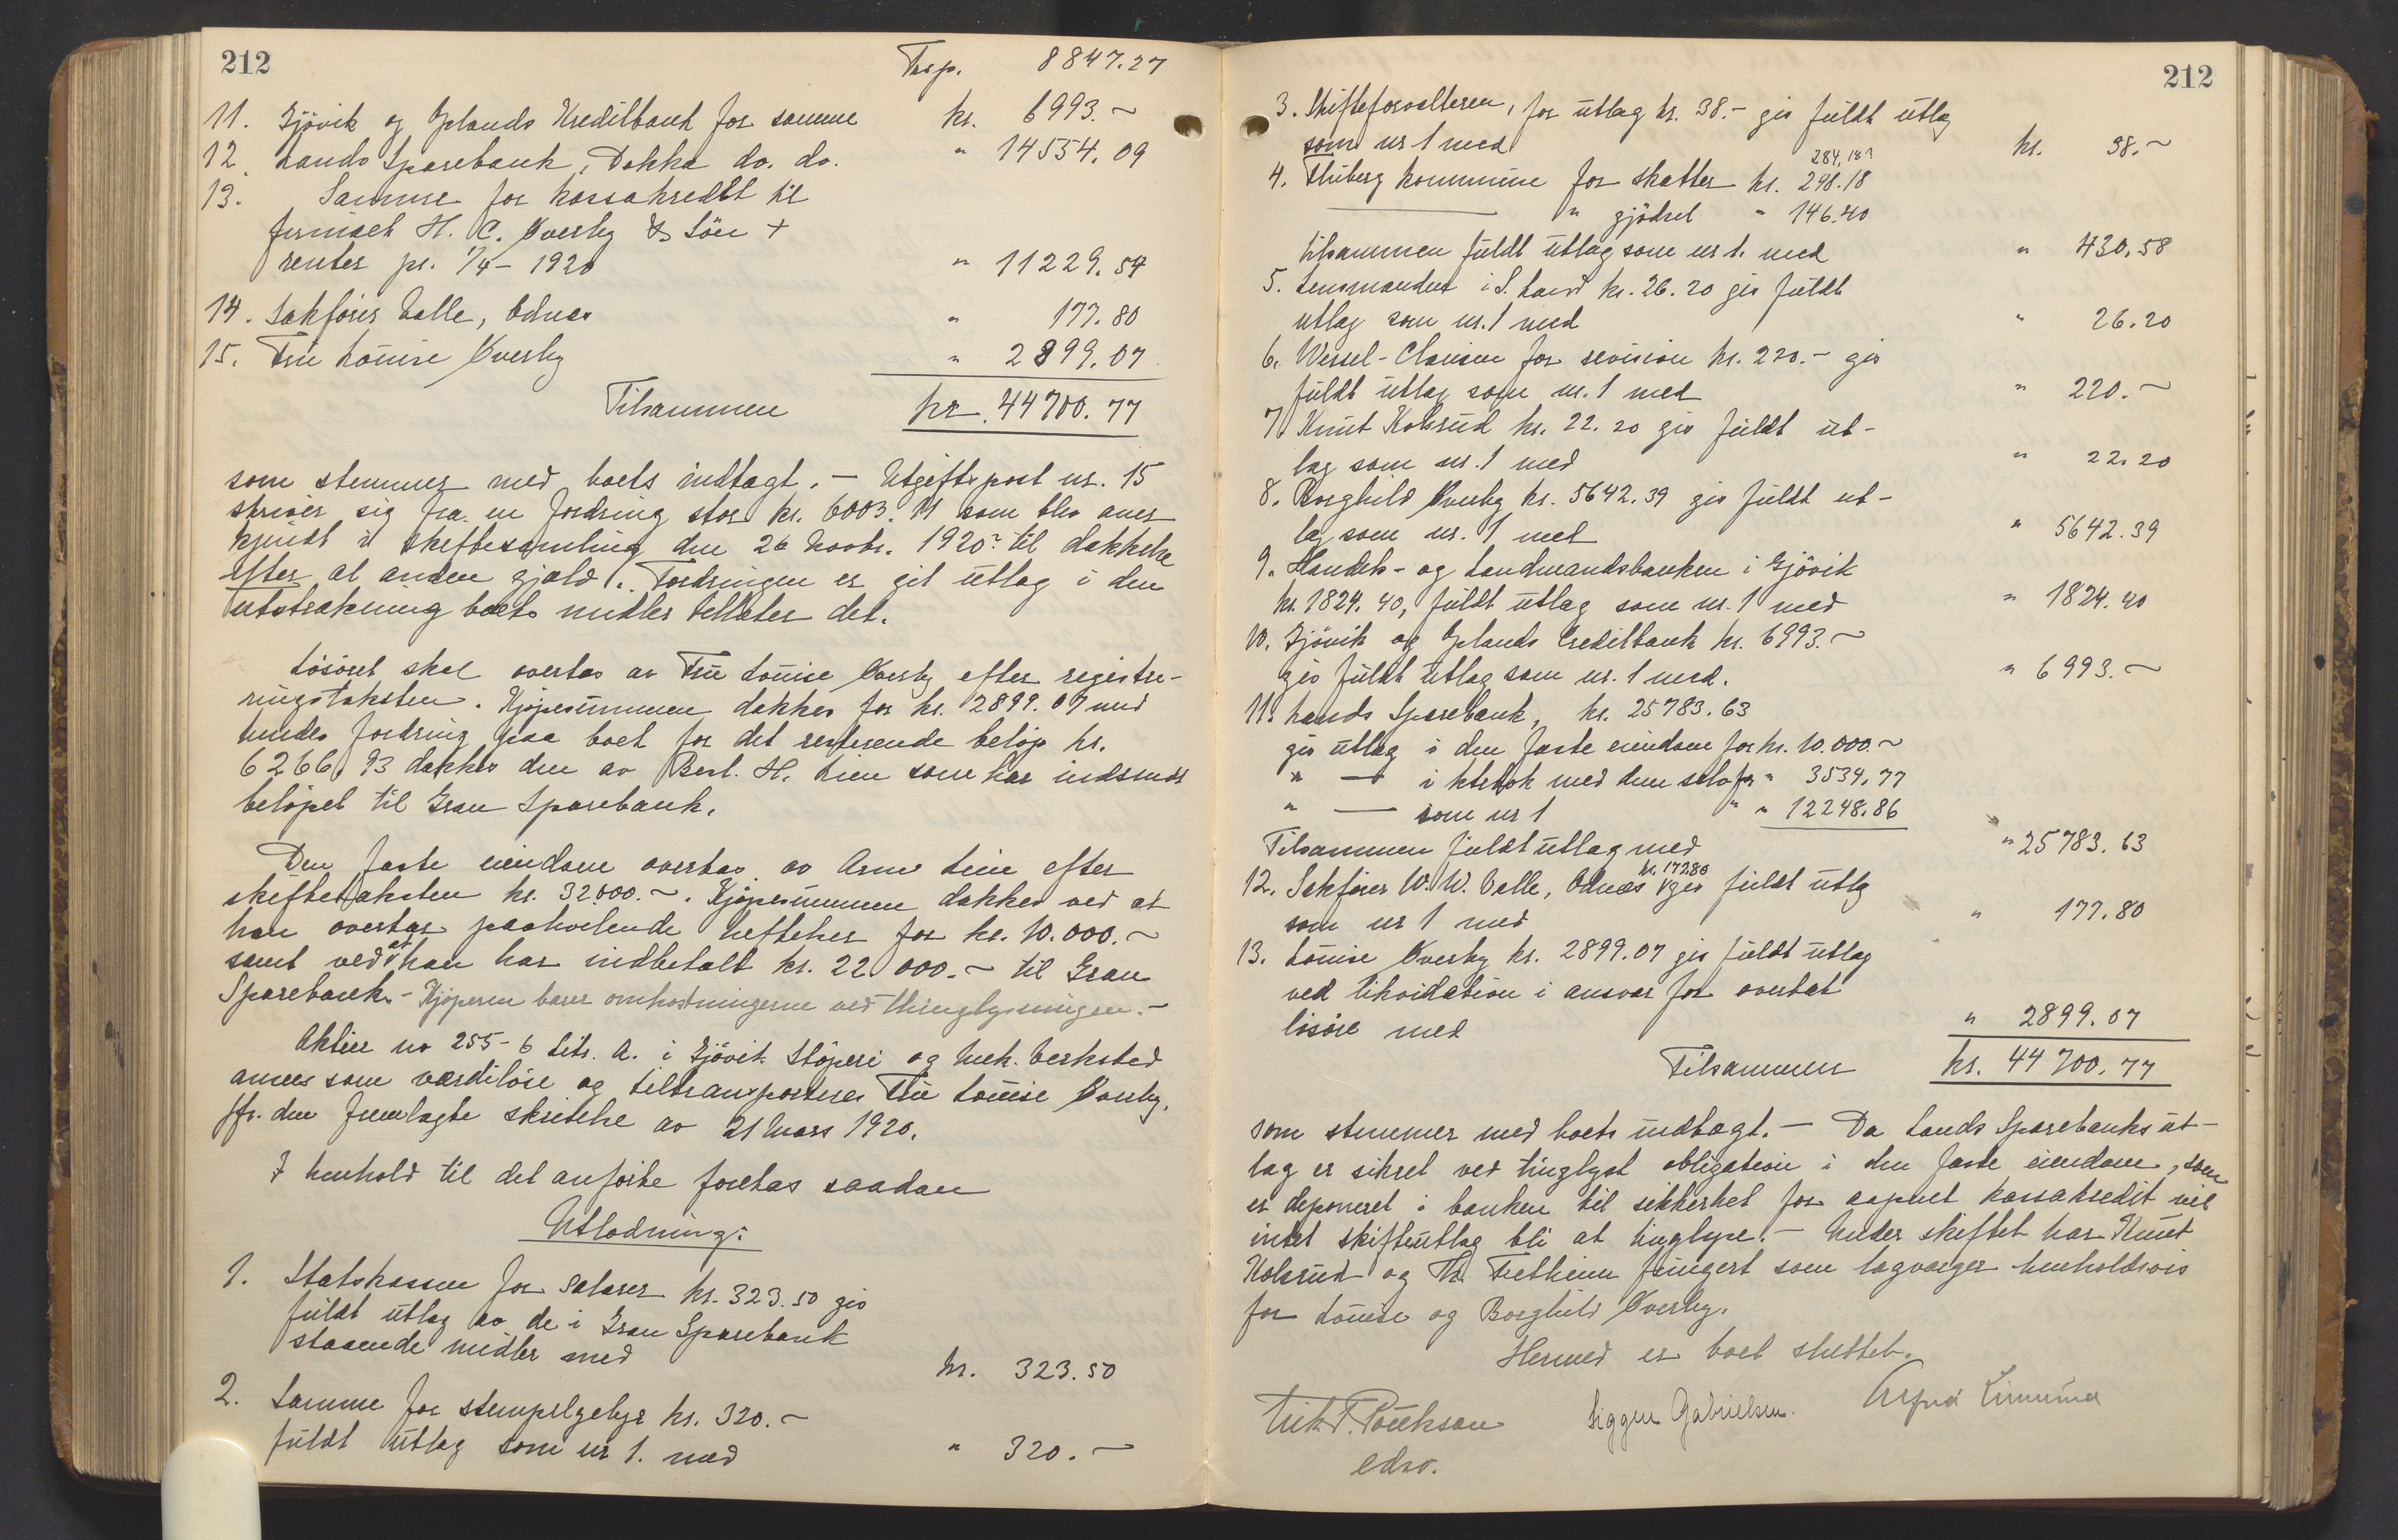 212
Trsp. 8847.27
11. Gjövik og Oplands Kreditbank for samme kr. 6993.~
12. Lands Sparebank, Dokka do. do. " 14554.09
13. Samme for kassakredit til
firmaet H. C. Överby & Sön +
renter pr. 1/4 - 1920 " 11229.54
14. Sakförer Valle, Odnes " 177.80
15. Fru Louise Överby " 2899.07
Tilsammen kr. 44700.77
som stemmer med boets indtægt. - Utgiftspost nr. 15
skriver sig fra en fordring stor kr. 6003.11 som blev aner
kjendt i skiftesamling den 26 Novbr. 1920 til dækkelse
efter al anden gjæld. Fordringen er git utlæg i den
utstrækning boets midler tillater det.
Lösöret skal overtas av Fru Louise Överby efter registre-
ringstaksten. Kjöpesummen dækkes for kr. 2899.07 med
hendes fordring paa boet for det resterende belöp kr.
6266.93 dækkes den av Berl. H. Lien som har indsendt
belöpet til Gran Sparebank.
Den faste eiendom overtas av Arne Lien efter
skiftetaksten kr. 32.000.~. Kjöpesummen dækkes ved at
han overtar paahvilende heftelser for kr. 10.000.~
samt ved at han har indbetalt kr. 22000.~ til Gran
Sparebank. - Kjöperen bærer omkostningerne ved thinglysningen. -
Aktier no 255-6 Litr. A. i Gjövik Stöperi og Mek. Verksted
ansees som værdilöse og tiltransporteres Fru Louise Överby,
jfr. den fremlagte skrivelse av 21 Mars 1920.
I henhold til det anförte foretas saadan
Utlodning:
1. Statskassen for Salærer kr. 323.50 gis
fuldt utlæg av de i Gran Sparebank
staaende midler med kr. 323.50
2. Samme for stempelgebyr kr. 320.~
fuldt utlæg som nr 1. med " 320.~
212
3. Skifteforvalteren, for utlæg kr. 38.- gis fuldt utlæg
som nr 1 med kr. 38.~
284,18
4. Fluberg kommune for skatter kr. 298.18
" gjödsel " 146.40
tilsammen fuldt utlæg som nr 1. med " 430.58
5. Lensmanden i S. Land kr. 26.20 gis fuldt
utlæg som nr. 1 med " 26.20
6. Wessel-Clausen for revision kr. 220.- gis
fuldt utlæg som nr. 1 med " 220.~
7. Knut Kolsrud kr. 22.20 gis fuldt ut-
læg som nr. 1 med " 22.20
8. Borghild Överby kr. 5642.39 gis fuldt ut-
læg som nr. 1 med " 5642.39
9. Handels- og Landmandsbanken i Gjövik
kr. 1824.40, fuldt utlæg som nr. 1 med " 1824.40
10. Gjövik og Oplands Creditbank kr. 6993.~
gis fuldt utlæg som nr. 1 med. " 6993.~
11. Lands Sparebank, kr. 25783.63
gis utlæg i den faste eiendom for kr. 10.000.~
" — i med den for " 3534.77
" — som nr 1 " " 12248.86
Tilsammen fuldt utlæg med " 25783.63
kr. 177.80
12. Sakförer W. W. Valle, Odnæs gis fuldt utlæg
som nr 1 med " 177.80
13. Louise Överby kr. 2899.07 gis fuldt utlæg
ved likvidation i ansvar for overtat
lösöre med " 2899.07
Tilsammen kr. 44700.77
som stemmer med boets indtægt. - Da Lands Sparebanks ut-
læg er sikret ved tinglyst obligation i den faste eiendom, som
er deponeret i banken til sikkerhet for aapnet kassakredit vil
intet skifteutlæg bli at tinglyse. - Under skiftet har Knut
Kolsrud og Th. Fretheim fungert som lagværger henholdsvis
for Louise og Borghild Överby.
Hermed er boet sluttet.
Erik T. Poulsson Siggen Gabrielsen.
edsv.